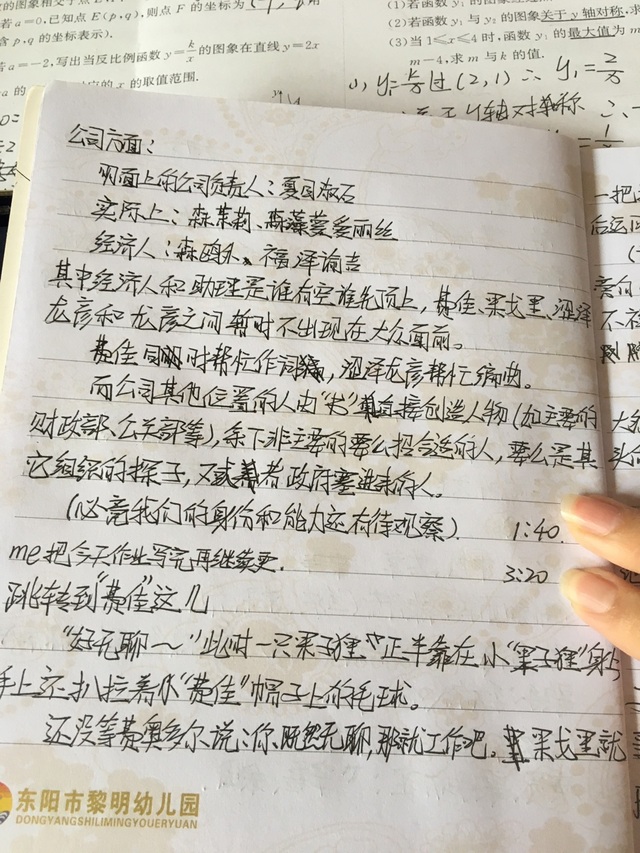 的图象相交于点
a=-3,已知点E(p,q),则点F的坐标为
含p,q的坐标表示).
若a=-2,写出当反比例函数y=k/x的图象在直线y=2x
的x的取值范围.
(1)若函数y₁的图象
(2)若函数y₁与y₂的图象关于y轴对称,求
(3)当1≤x≤4时,函数y₁的最大值为m
m-4,求m与k的值.
(1) y₁=k/x过(2,1) ∴ y₁=2/x
y轴对称 ∴
公司方面:
明面上的公司负责人:夏目漱石
实际上:森茉莉、爱丽丝
经济人:森鸥外、福泽谕吉
其中经济人和助理是谁有空谁先顶上,费佳、果戈里、涩泽
龙彦和龙彦之间暂时不出现在大众面前。
费佳同时帮忙作词,涩泽龙彦帮忙编曲。
而公司其他位置的人由“书”直接创造人物(如主要的
财政部、公关部等),余下非主要的要么招合适的人,要么是其
它组织的探子,又或者政府塞进来的人。
(必竟我们的身份和能力还有待观察)
1:40
me把今天作业写完再继续更.
3:20
跳转到“费佳”这儿
“好无聊~”此时一只果子狸正半靠在小“果子狸”身上
手上还扒拉着“费佳”帽子上的毛球。
还没等费奥多尔说:你既然无聊,那就工作吧。果戈里就
一把
后运
不
东阳市黎明幼儿园
DONGYANGSHILIMINGYOUERYUAN